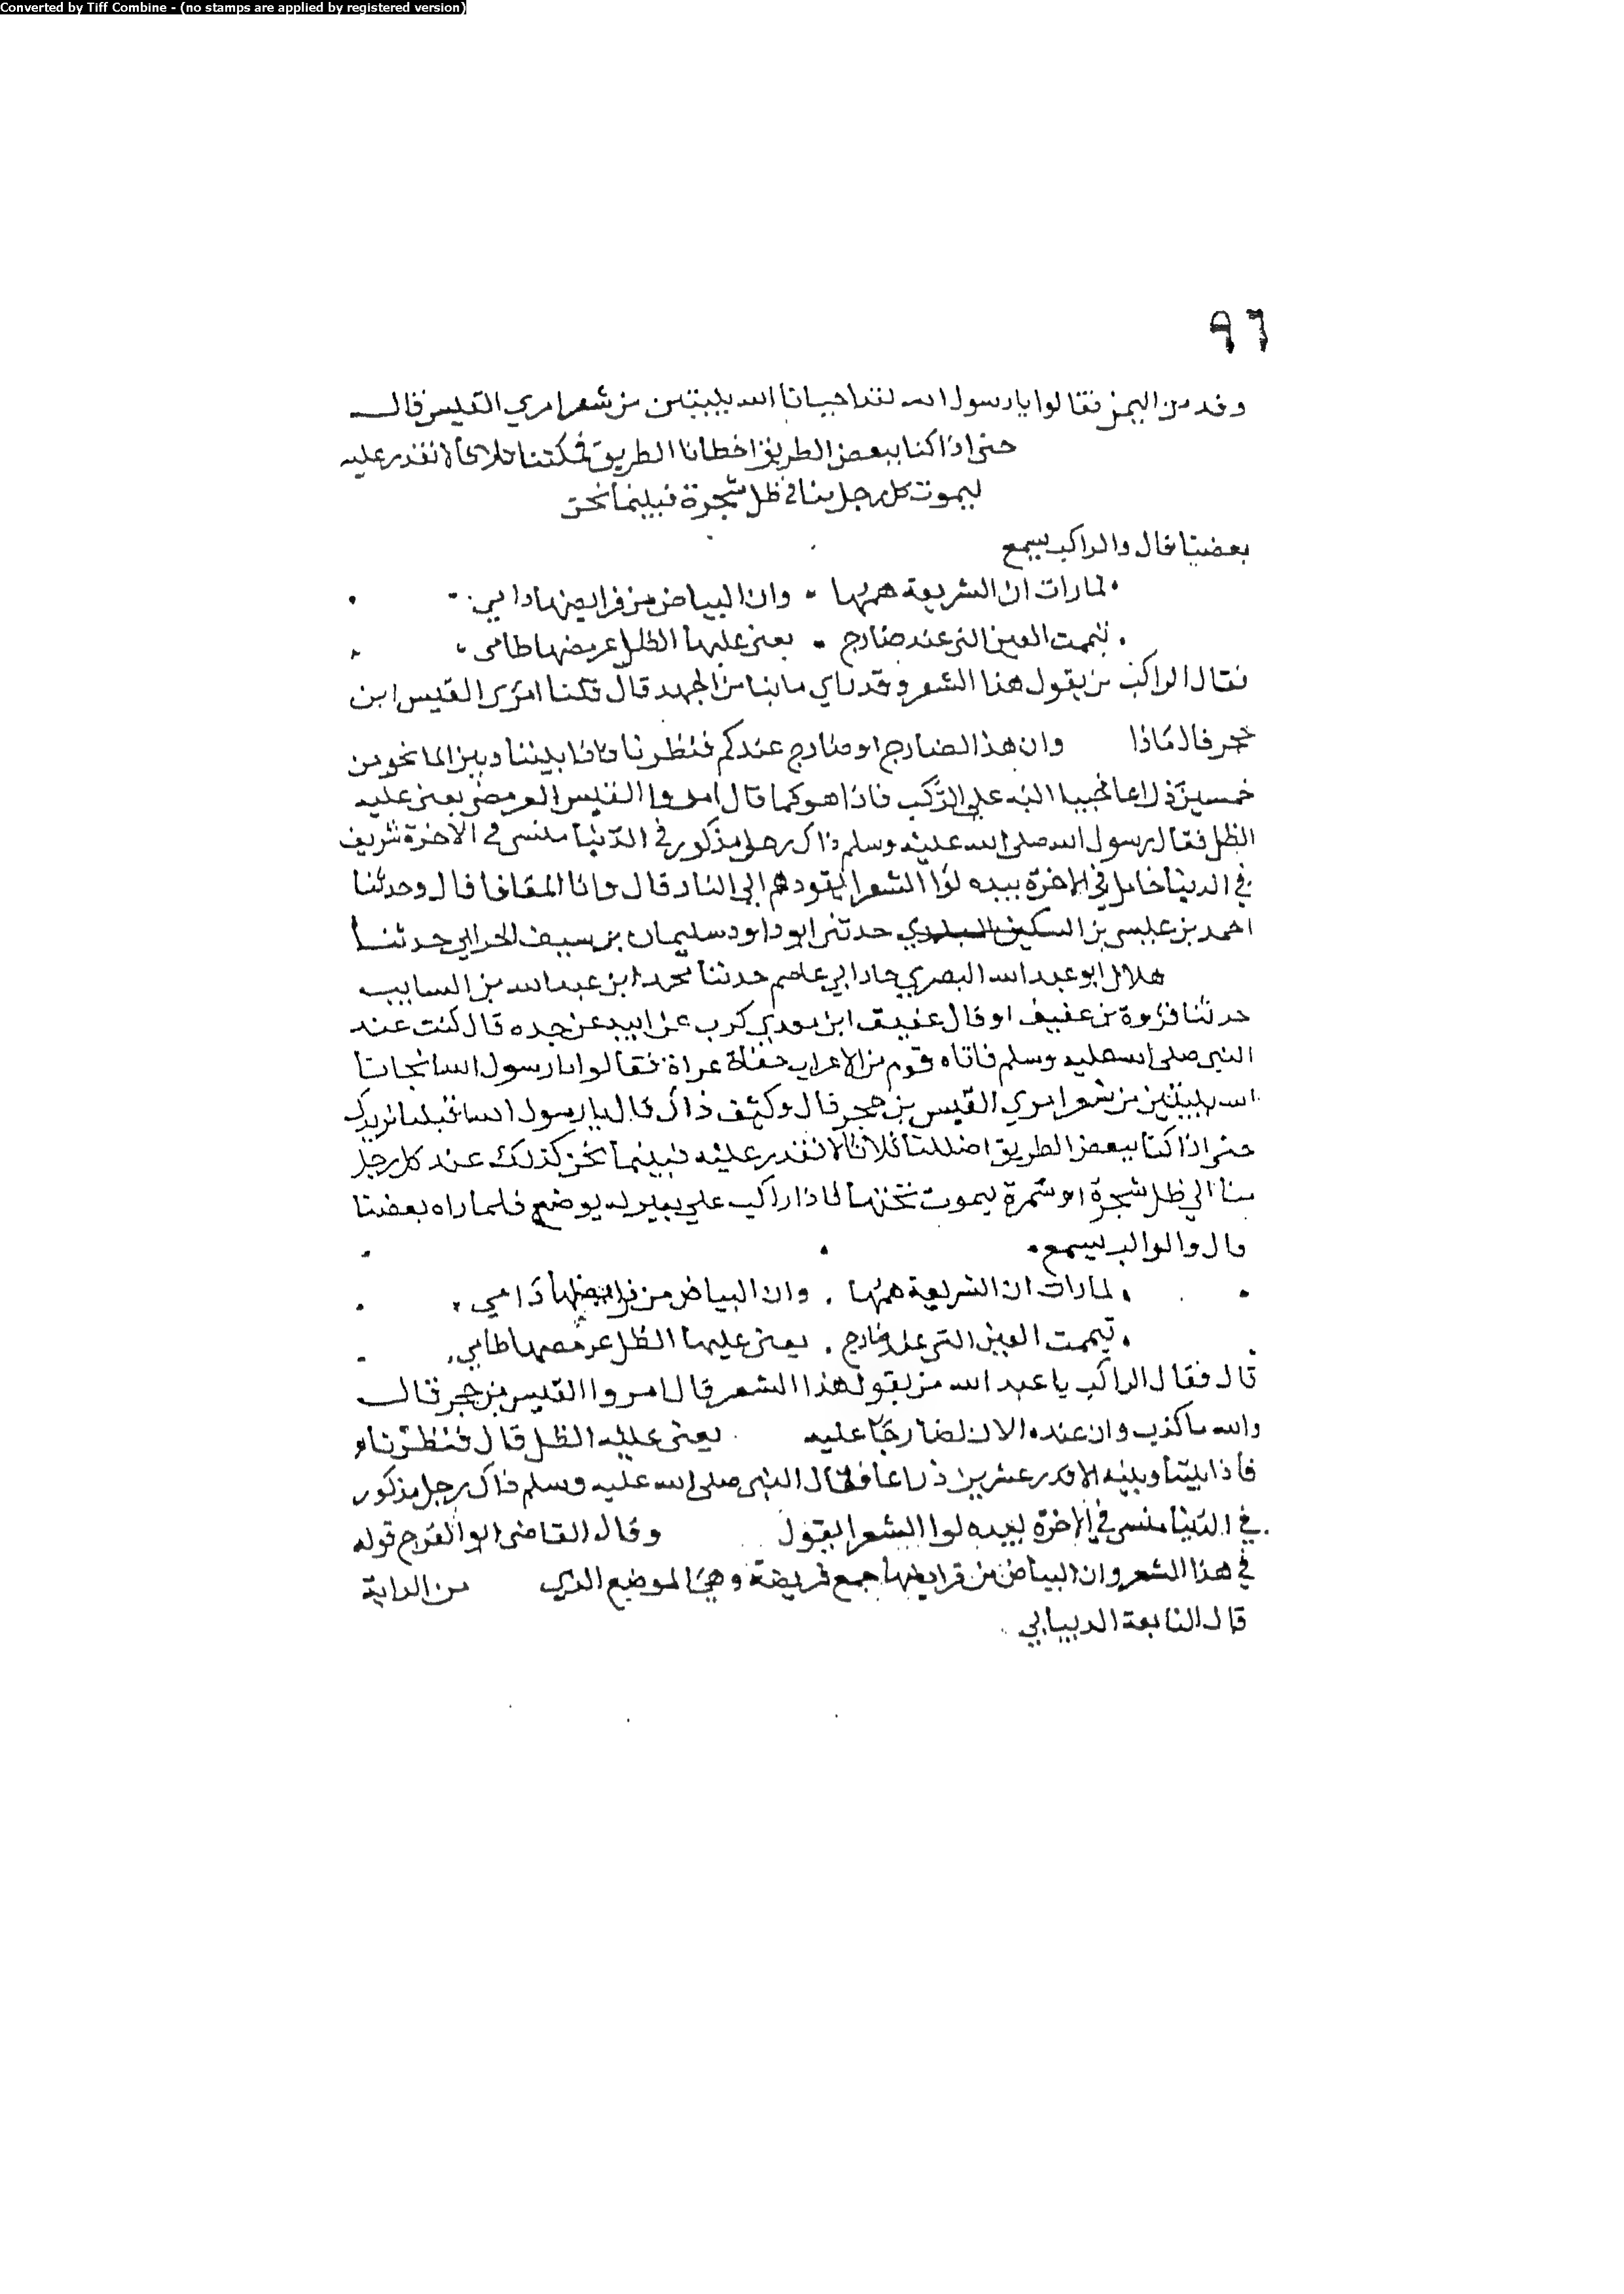 Converted by Tiff Combine - (no stamps are applied by registered version)
٩٦
وفد من اليمن فقالوا يا رسول الله لقد احيانا الله ببيتين من شعر امري القيس قال
حتى اذا كنا ببعض الطريق اخطانا الطريق فمكثنا ثلاثا لا نقدر عليه
ليموت كل رجل منا في ظل شجرة فبينما نحن
بعضنا قال والراكب يسمع
لما رات ان الشريعة همها وان البياض من فرايصها دامي
تيممت العين التي عند ضارج يفي عليها الظل عرمضها طامي
فقال الراكب من يقول هذا الشعر وقد راي ما بنا من الجهد قال قلنا امرؤ القيس ابن
حجر قال ماذا وان هذا لضارج او ضارج عندكم فنظرنا فاذا بيننا وبين الما نحو من
خمسين ذراعا فحبينا اليه على الركب فاذا هو كما قال امروا القيس العرمض يفي عليه
الظل فقال رسول الله صلى الله عليه وسلم ذاك رجل مذكور في الدنيا منسي في الاخرة شريف
في الدنيا خامل في الاخرة بيده لوا الشعرا يقودهم الى النار قال وانا المعافا قال وحدثنا
احمد بن عيسى بن السكين البلدي حدثني ابو داود سليمان بن سيف الحراني حدثنا
هلال ابو عبد الله البصري جار ابي عاصم حدثنا محمد ابن عبد الله بن السايب
حدثنا فروة بن عفيف او قال عفيف ابن معدي كرب عن ابيه عن جده قال كنت عند
النبي صلى الله عليه وسلم فاتاه قوم من الاعراب حفاة عراة فقالوا يا رسول الله انجانا
الله ببيتين من شعر امري القيس بن حجر قال وكيف ذاك قال يا رسول الله اقبلنا نريدك
حتى اذا كنا ببعض الطريق اضللنا ثلاثا لا نقدر عليه فبينما نحن كذلك عند كل رجل
منا الى ظل شجرة او سمرة ليموت تحتها فاذا راكب على بعير له يوضع فلما راه بعضنا
قال والراكب يسمع
لما رات ان الشريعة همها وان البياض من فرايصها دامي
تيممت العين التي عند ضارج يفي عليها الظل عرمضها طامي
قال فقال الراكب يا عبد الله من يقول هذا الشعر قال امروا القيس بن حجر قال
والله ما كذب وان عنده الان لضارجا عليه يفي عليه الظل قال فنظرنا
فاذا بيننا وبينه الا قدر عشرين ذراعا فقال النبي صلى الله عليه وسلم ذاك رجل مذكور
في الدنيا منسي في الاخرة بيده لوا الشعرا يقول وقال القاضي ابو الفرج قوله
في هذا الشعر وان البياض من فرايصها جمع فريصة وهي الموضع الذي من الدابة
قال النابغة الذبياني